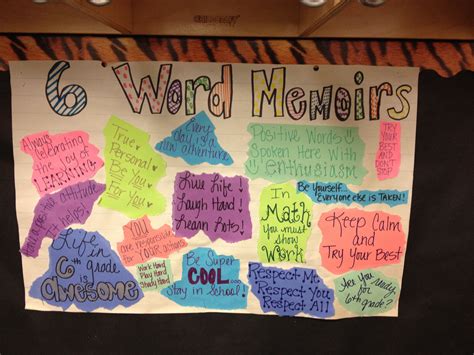 6 Word Memoirs
Always
celebrating
the joy of
LEARNING
True
Personal
Best
For You
Every
day is a
new adventure
Positive Words
Spoken Here With
Enthusiasm
TRY
YOUR
BEST
AND
DON'T
STOP
Good attitude
helps!
Live Life!
Laugh Hard!
Learn Lots!
Be Yourself...
Everyone else is TAKEN!
In
Math
You must
show
Work
Keep Calm
and
Try Your Best
You
are responsible
for YOUR actions
Life in
6th grade is
awesome
Work Hard
Play Hard
Study Hard
Be Super
COOL...
Stay in School!
Respect Me
Respect You
Respect All
Are You ready
for
6th grade?